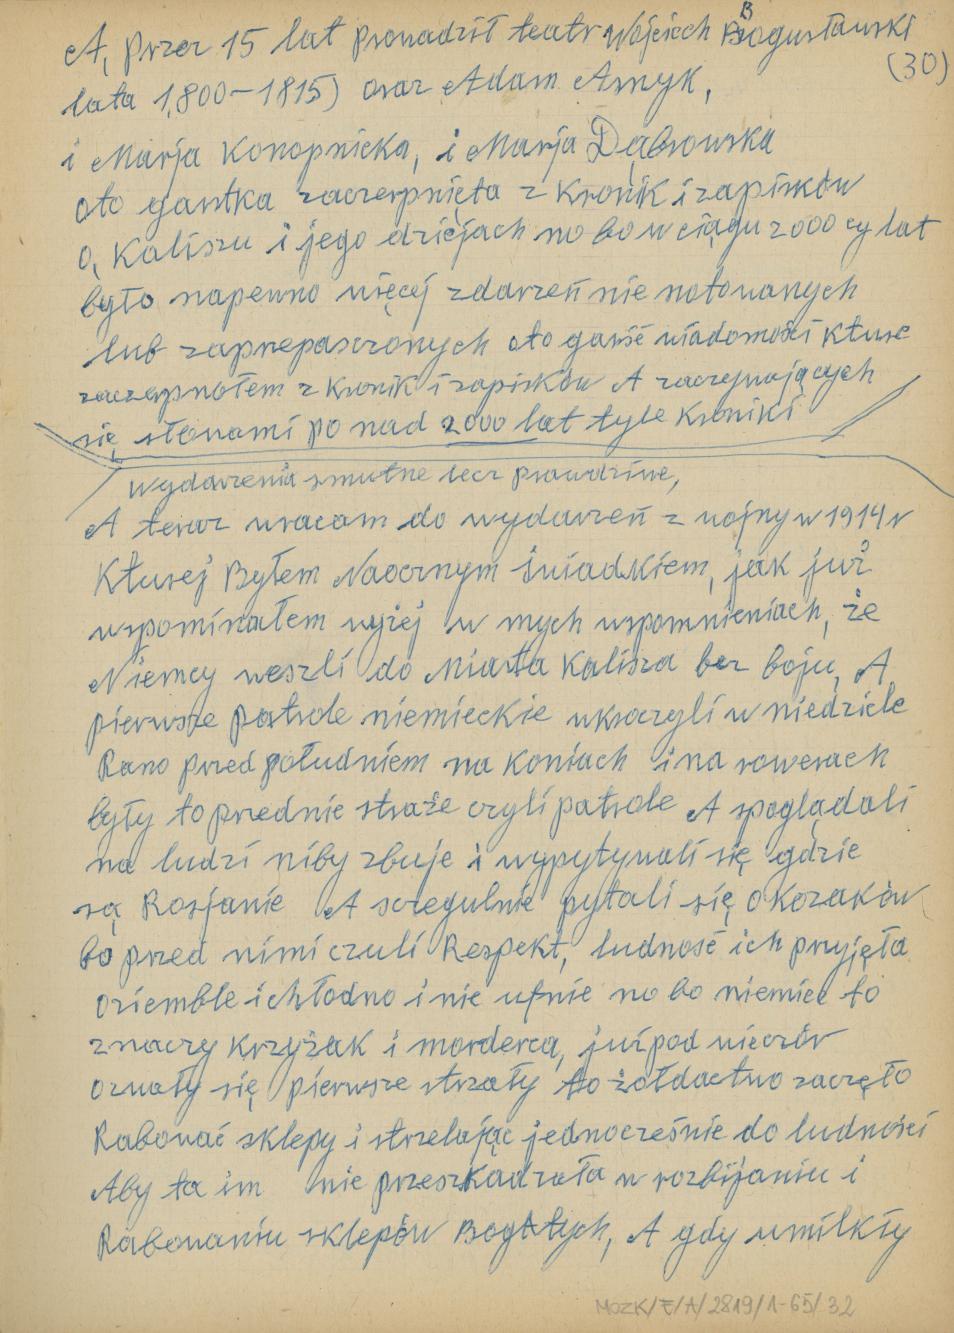 A, przez 15 lat prowadził teatr Wojciech Bogusławski
(30)
lata 1,800-1815) oraz Adam Asnyk,
i Marja Konopnicka, i Marja Dąbrowska
oto garstka zaczerpnięta z Kronik i zapisków
o, Kaliszu i jego dziejach no bo w ciągu 2000 cy lat
było napewno więcej zdarzeń nie notowanych
lub zaprzepaszczonych oto garść wiadomości kture
zaczerpnołem z Kronik i zapisków A zaczynających
się słowami po nad 2000 lat tyle Kroniki
Wydarzenia smutne lecz prawdziwe,
A teraz wracam do wydarzeń z wojny w 1914 r
Kturej Byłem Naocznym świadkiem, jak już
wspominałem wyżej w mych wspomnieniach, że
Niemcy weszli do Miasta Kalisza bez boju, A
pierwsze patrole niemieckie wkroczyli w niedziele
Rano przed południem na koniach i na rowerach
były to przednie straże czyli patrole A spoglądali
na ludzi niby zbuje i wypytywali się gdzie
są Rosjanie A szczegulnie pytali się o Kozaków
bo przed nimi czuli Respekt, ludność ich przyjęła
oziemble i chłodno i nie ufnie no bo niemiec to
znaczy Krzyżak i morderca, już pod wieczór
ozwały się pierwsze strzały to żołdactwo zaczęło
Rabować sklepy i strzelając jednocześnie do ludności
Aby ta im nie przeszkadzała w rozbijaniu i
Rabowaniu sklepów Bogatych, A gdy umilkły
MOZK/E/A/2819/1-65/32